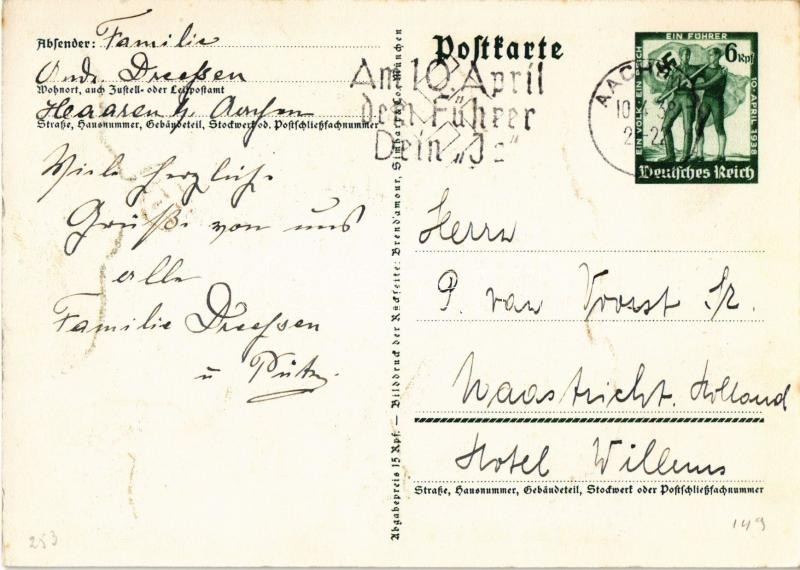 Absender: Familie
Andr. Dreeßen
Wohnort, auch Zustell- oder Leitpostamt
Haaren b/ Aachen
Straße, Hausnummer, Gebäudeteil, Stockwerk od. Postschließfachnummer
Viele herzliche
Grüße von uns
alle
Familie Dreeßen
u Pütz
Abgabepreis 15 Rpf. — Bilddruck der Rückseite: Brend'amour, Simhart & Co., München
Postkarte
Am 10. April
dem Führer
Dein „Ja"
AACHEN
10.4.38
EIN VOLK · EIN REICH
EIN FÜHRER
6 Rpf
10. APRIL 1938
Deutsches Reich
Herrn
P. van Voorst Sr.
Maastricht. Holland
Hotel Willems
Straße, Hausnummer, Gebäudeteil, Stockwerk oder Postschließfachnummer
253
149